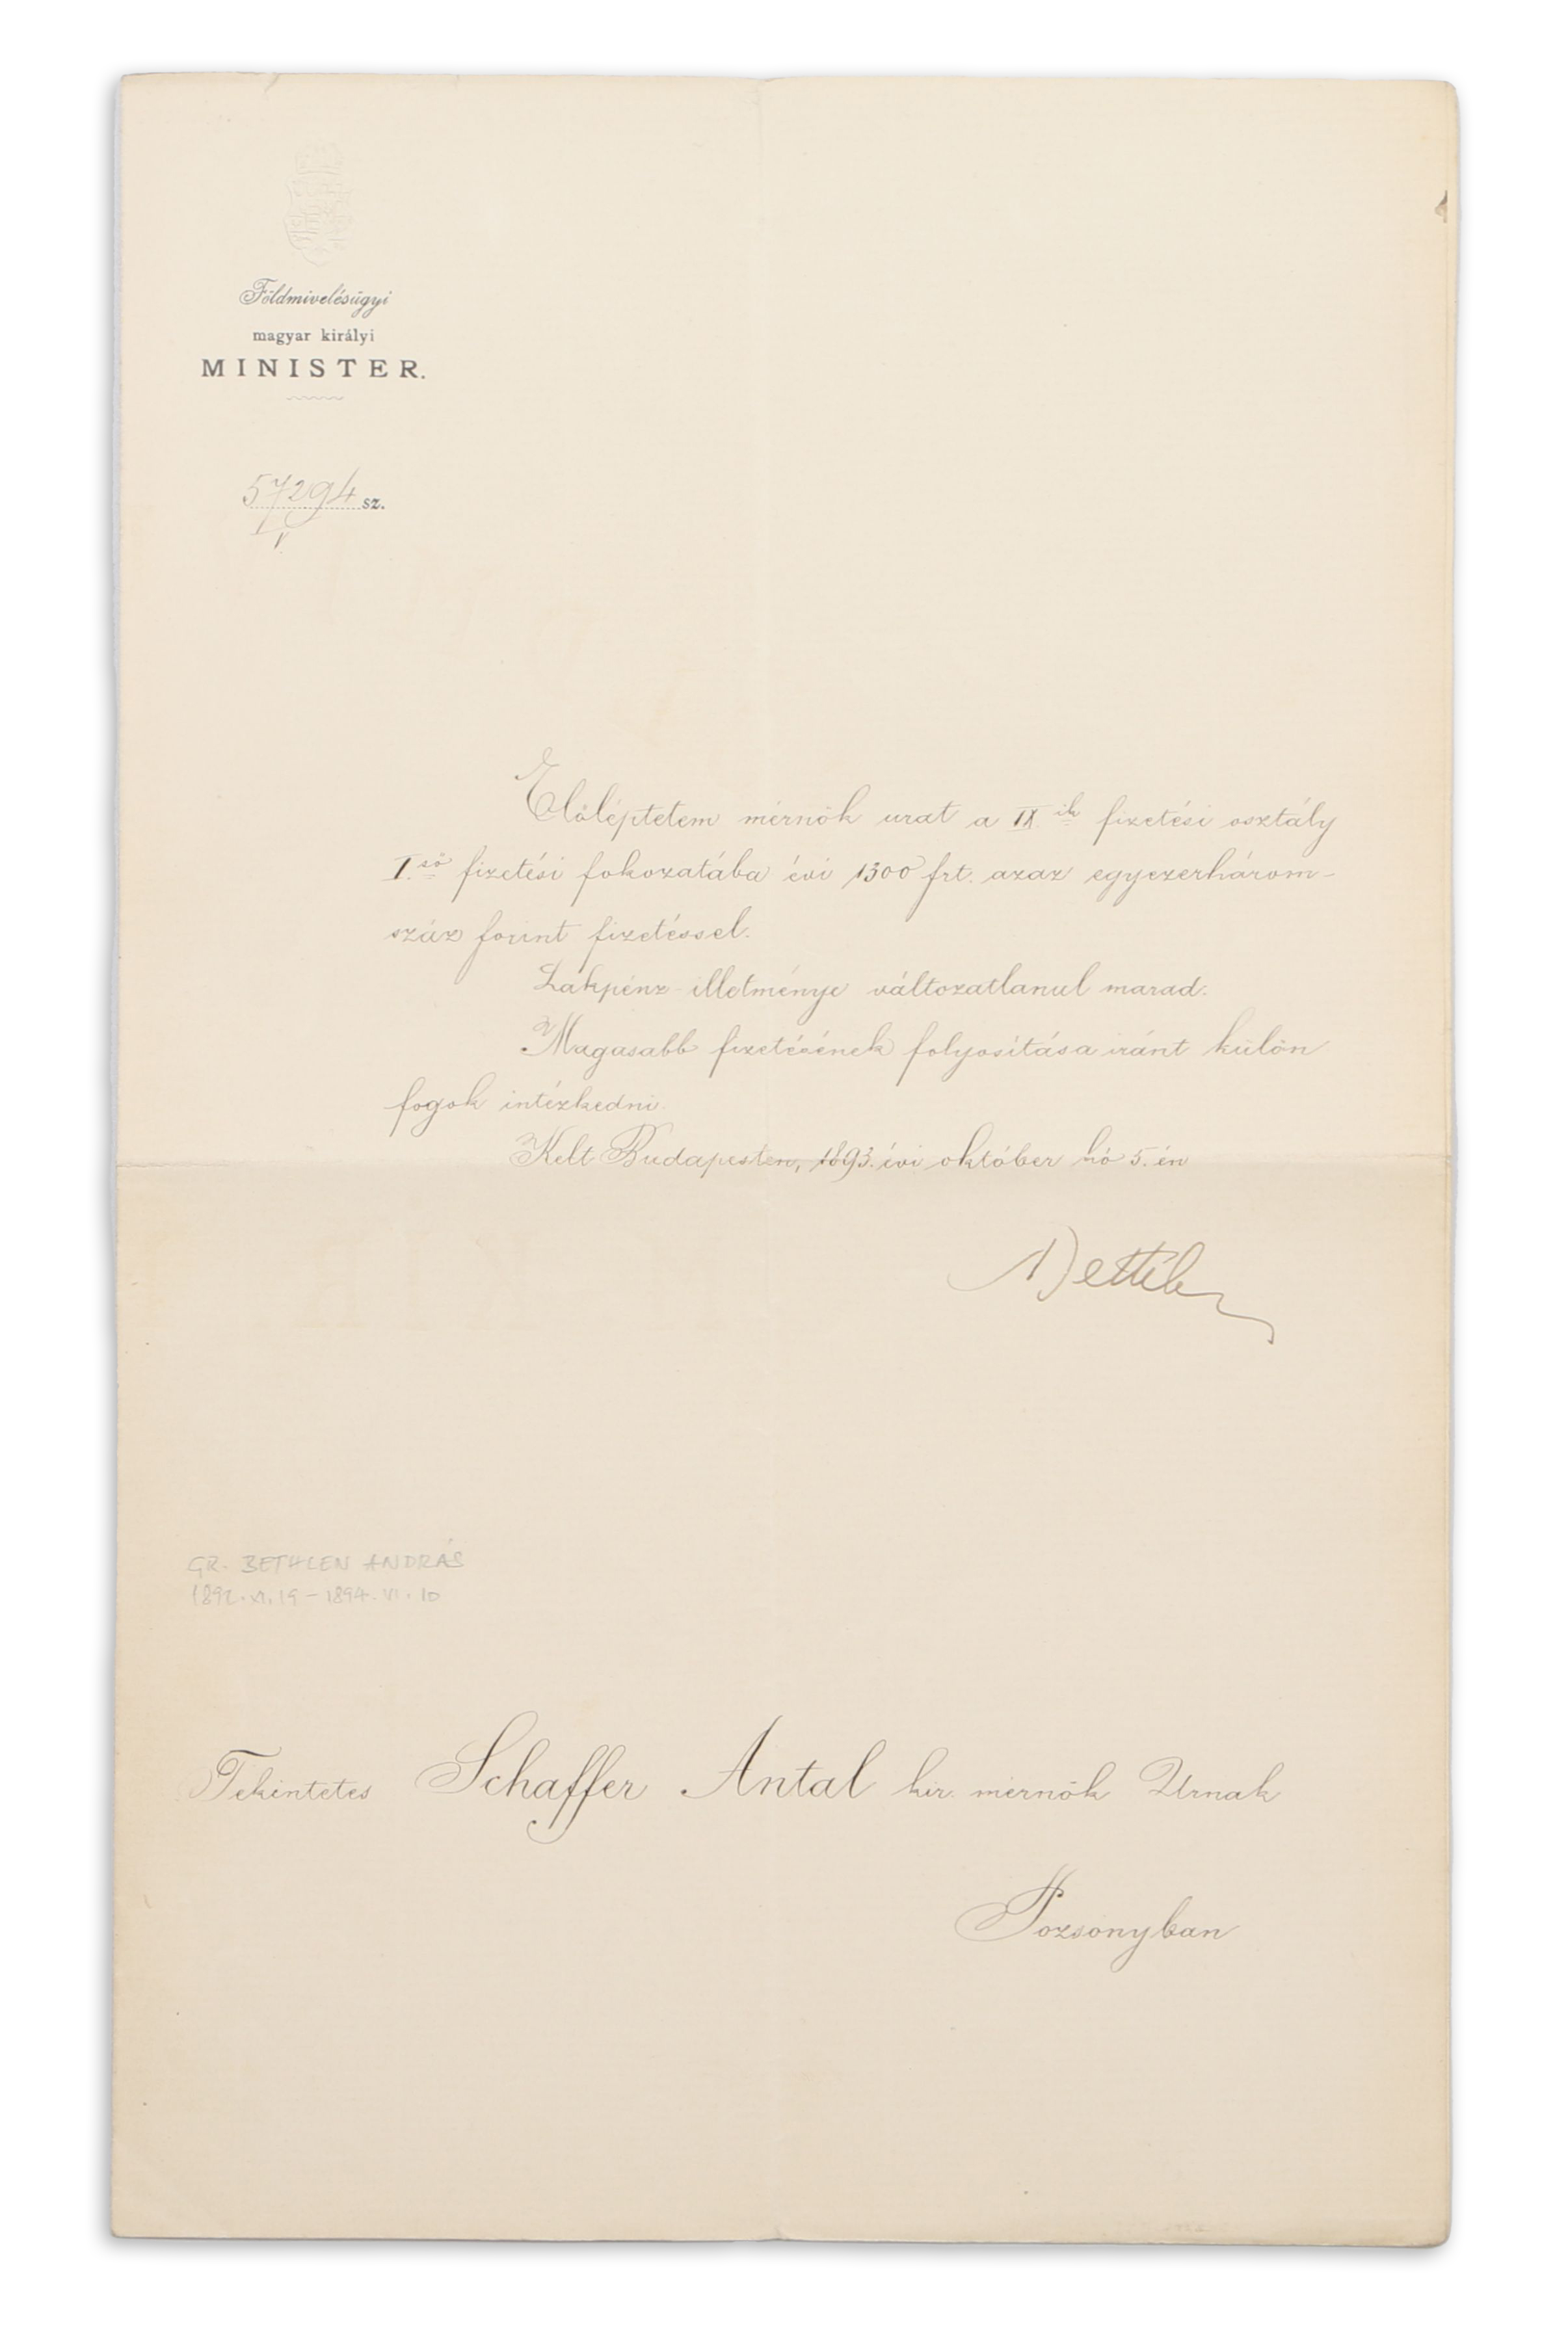 Földmivelésügyi
magyar királyi
MINISTER.
57294 sz.
I.
Előléptetem mérnök urat a IX ik fizetési osztály
I. ső fizetési fokozatába évi 1300 frt. azaz egyezerhárom-
száz forint fizetéssel.
Lakpénz-illetménye változatlanul marad.
Magasabb fizetésének folyosítása iránt külön
fogok intézkedni.
Kelt Budapesten, 1893. évi október hó 5. én
Bethlen
GR. BETHLEN ANDRÁS
1892. XI. 19 - 1894. VI. 10
Tekintetes Schaffer Antal kir. mérnök Urnak
Pozsonyban